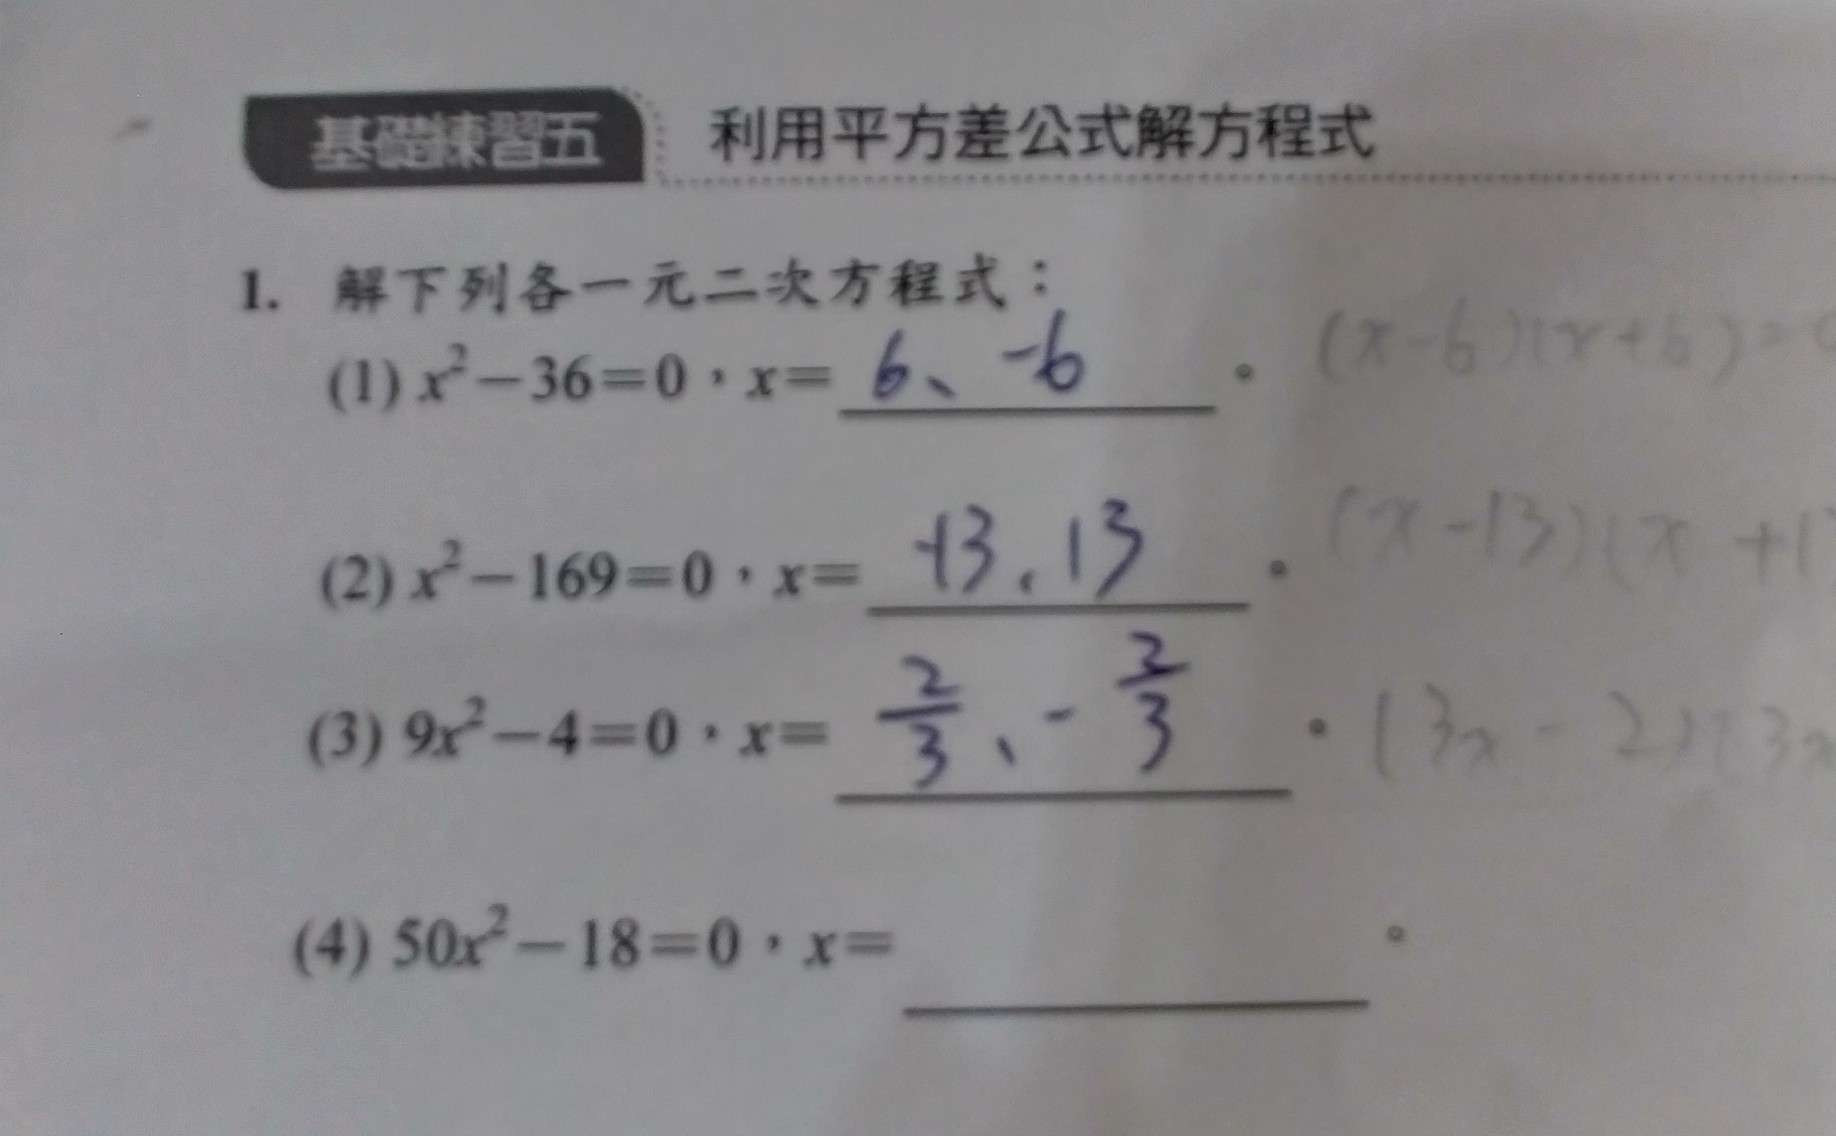 基礎練習五 利用平方差公式解方程式
1. 解下列各一元二次方程式：
(1) x²－36＝0，x＝ 6、-6 。 (x-6)(x+6)=0
(2) x²－169＝0，x＝ -13、13 。 (x-13)(x+1
(3) 9x²－4＝0，x＝ 2/3、-2/3 。 (3x-2)(3x
(4) 50x²－18＝0，x＝ 。